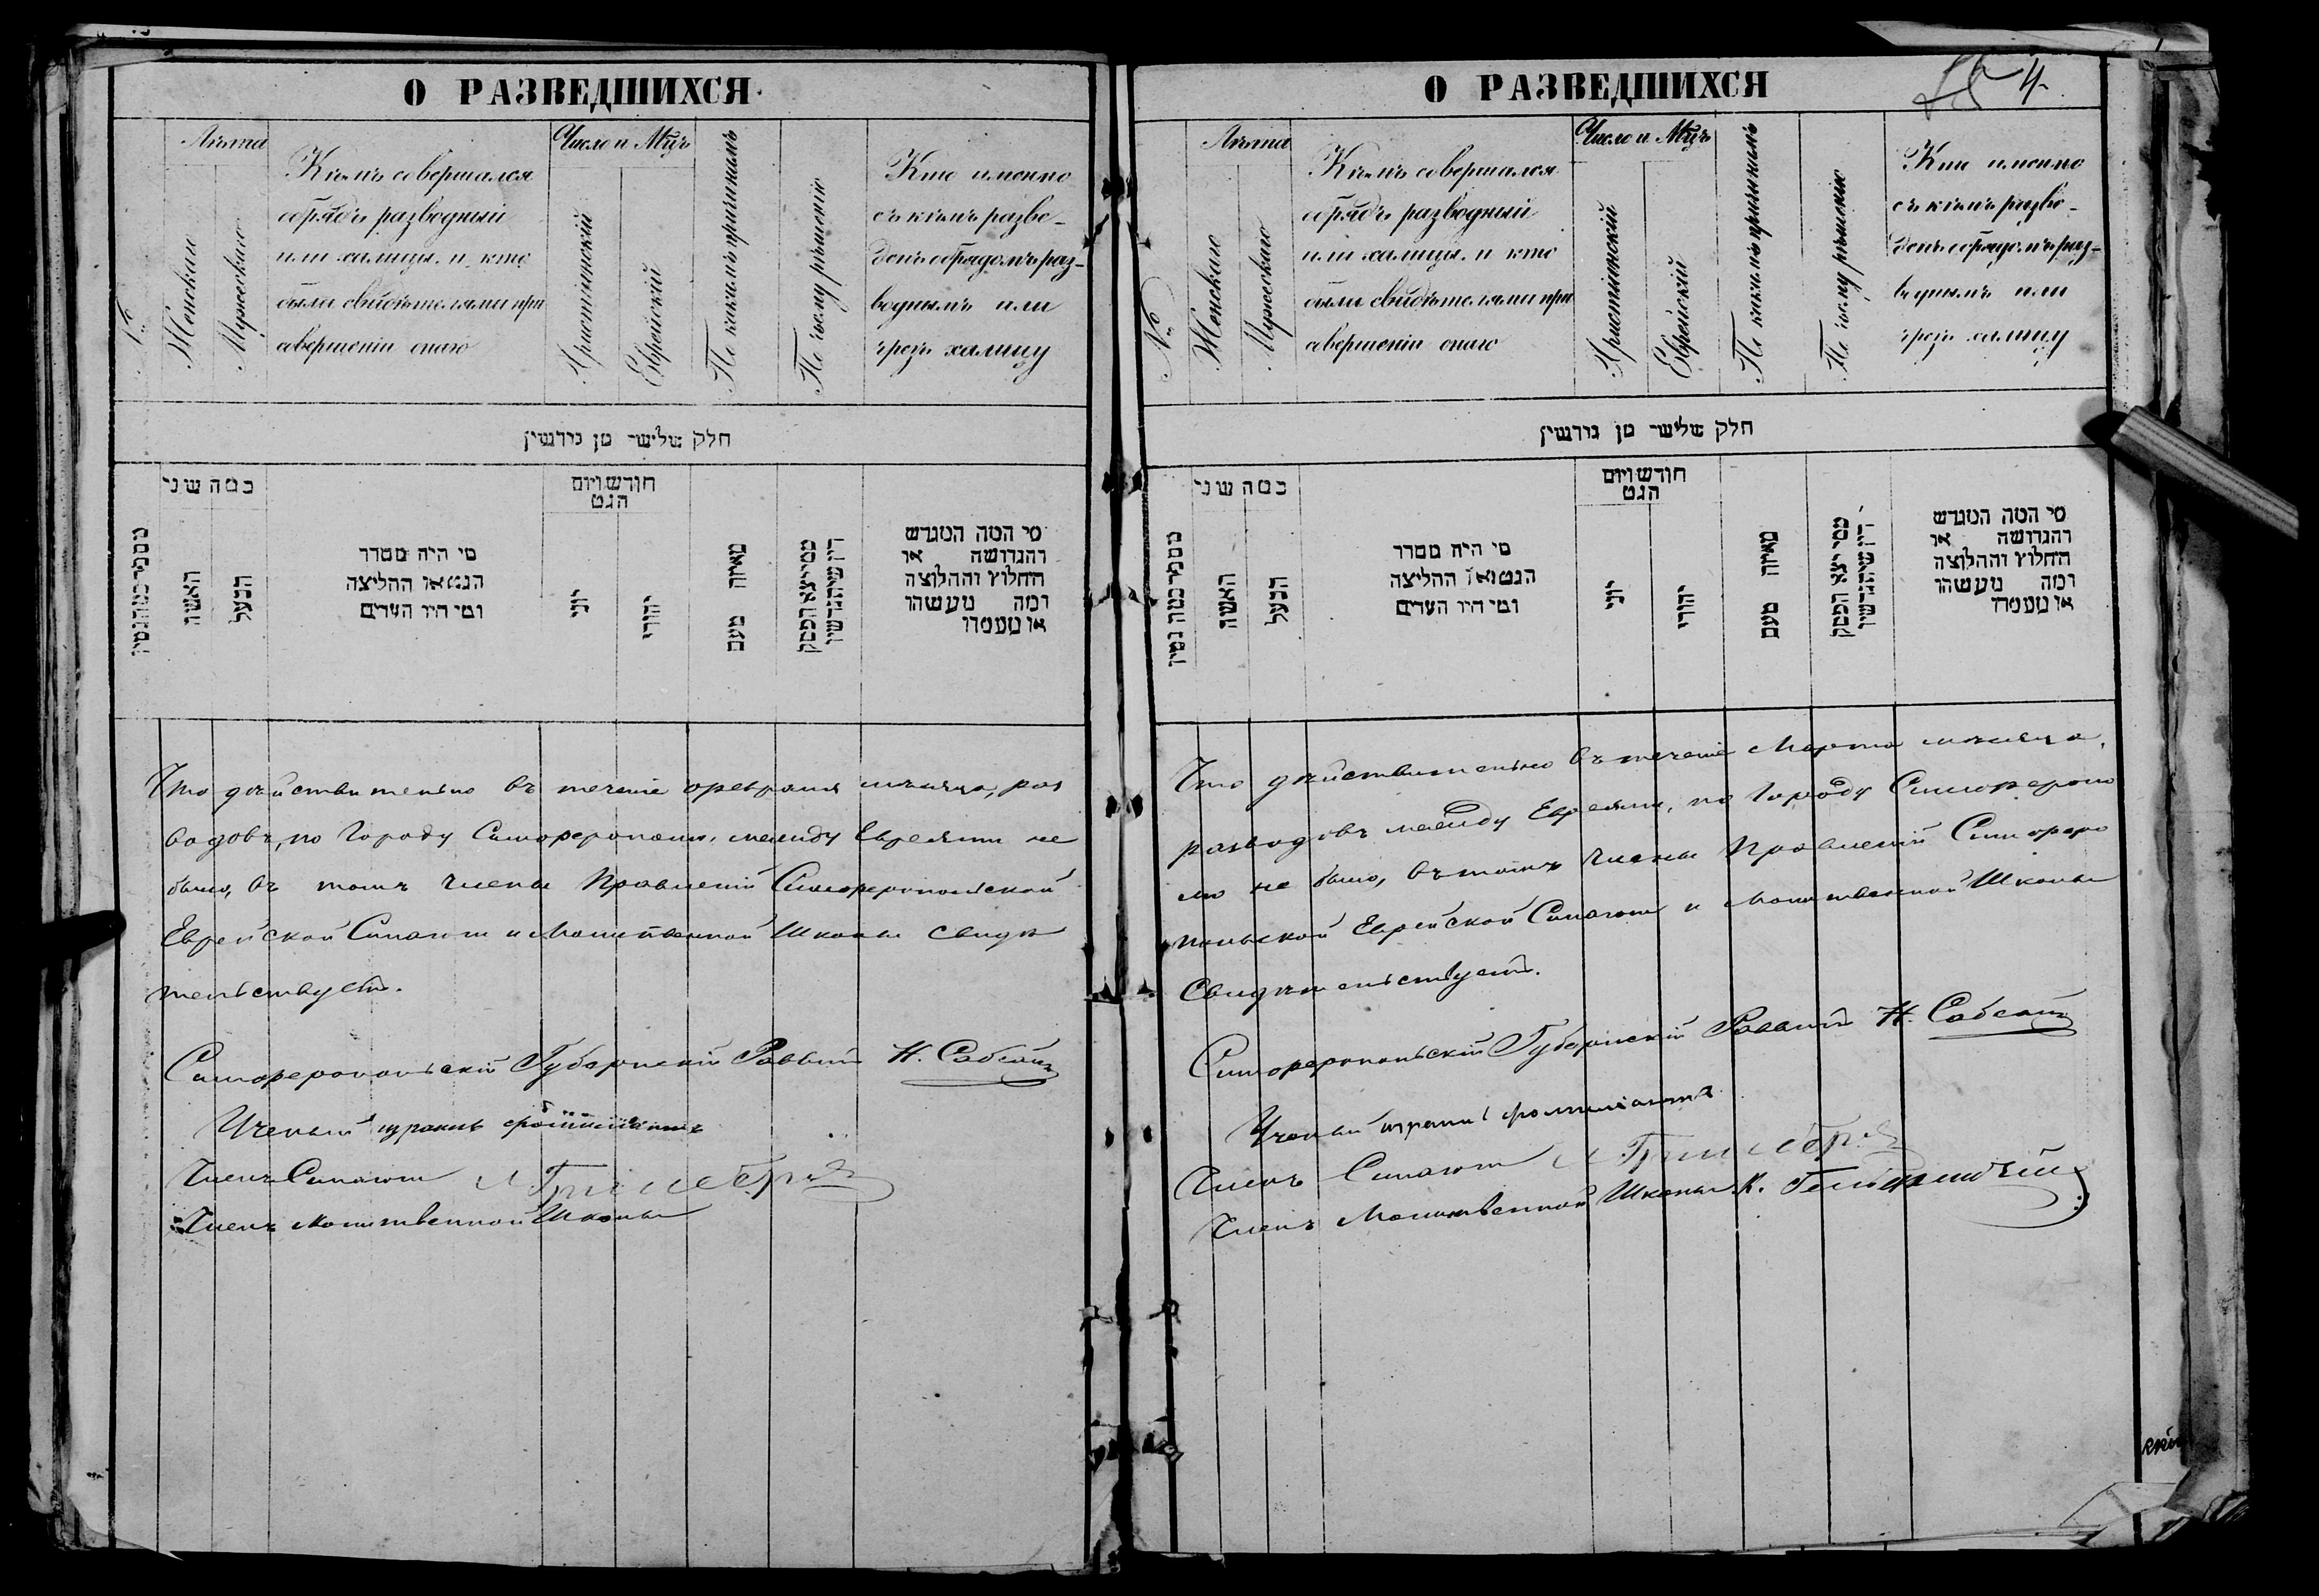 О РАЗВЕДШИХСЯ
Лѣта
Число и Мѣц̃ъ
№
Женскаго
Мужескаго
Кѣмъ совершался
обрядъ разводный
или халицы, и кто
были свидѣтелями при
совершеніи онаго
Христіянскій
Еврейскій
По какимъ причинамъ
По чьему рѣшенію
Кто именно
съ кѣмъ разве-
денъ обрядомъ раз-
воднымъ или
чрезъ халицу
חלק שלישי מן גירושין
כמה שני
חודש ויום
הגט
מספר כמה גטין
האשה
הבעל
מי היה מסדר
הגט או החליצה
ומי היו העדים
יוני
יהודי
מאיזה טעם
ממי יצא הפסק
דין שיתגרשו
מי המה המגרש
והגרושה או
החלוץ והחלוצה
ומה מעשהו
או מעמדו
Что дѣйствительно въ теченіе февраля мѣсяца, раз
водовъ, по Городу Симферополю, между Евреями не
было, въ томъ Члены Правленій Симферопольской
Еврейской Синагоги и Молитвенной Школы свидѣ
тельствуетъ.
Симферопольскій Губернскій Раввинъ Н. Сабсай
Ученый
Членъ Синагоги
Членъ Молитвенной Школы
О РАЗВЕДШИХСЯ
4
Лѣта
Число и Мѣц̃ъ
№
Женскаго
Мужескаго
Кѣмъ совершался
обрядъ разводный
или халицы, и кто
были свидѣтелями при
совершеніи онаго
Христіянскій
Еврейскій
По какимъ причинамъ
По чьему рѣшенію
Кто именно
съ кѣмъ разве-
денъ обрядомъ раз-
воднымъ или
чрезъ халицу
חלק שלישי מן גירושין
כמה שני
חודש ויום
הגט
מספר כמה גטין
האשה
הבעל
מי היה מסדר
הגט או החליצה
ומי היו העדים
יוני
יהודי
מאיזה טעם
ממי יצא הפסק
דין שיתגרשו
מי המה המגרש
והגרושה או
החלוץ והחלוצה
ומה מעשהו
או מעמדו
Что дѣйствительно въ теченіе Марта мѣсяца,
разводовъ между Евреями, по Городу Симферопо
лю не было, въ томъ Члены Правленій Симферо
польской Еврейской Синагоги и Молитвенной Школы
Свидѣтельствуетъ.
Симферопольскій Губернскій Раввинъ Н. Сабсай
Ученый
Членъ Синагоги
Членъ Молитвенной Школы К.